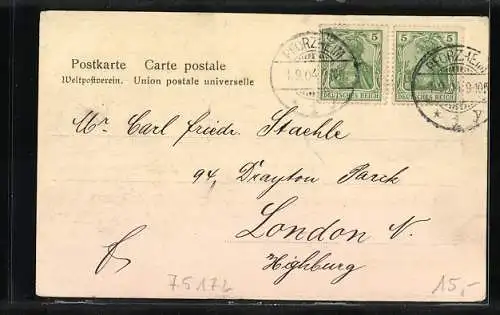 5 5
DEUTSCHES REICH DEUTSCHES REICH
PFORZHEIM PFORZHEIM
Postkarte Carte postale
Weltpostverein. Union postale universelle
Mr. Carl Friedr. Staehle
94, Drayton Parck
London N.
Highburg
75176
15,-